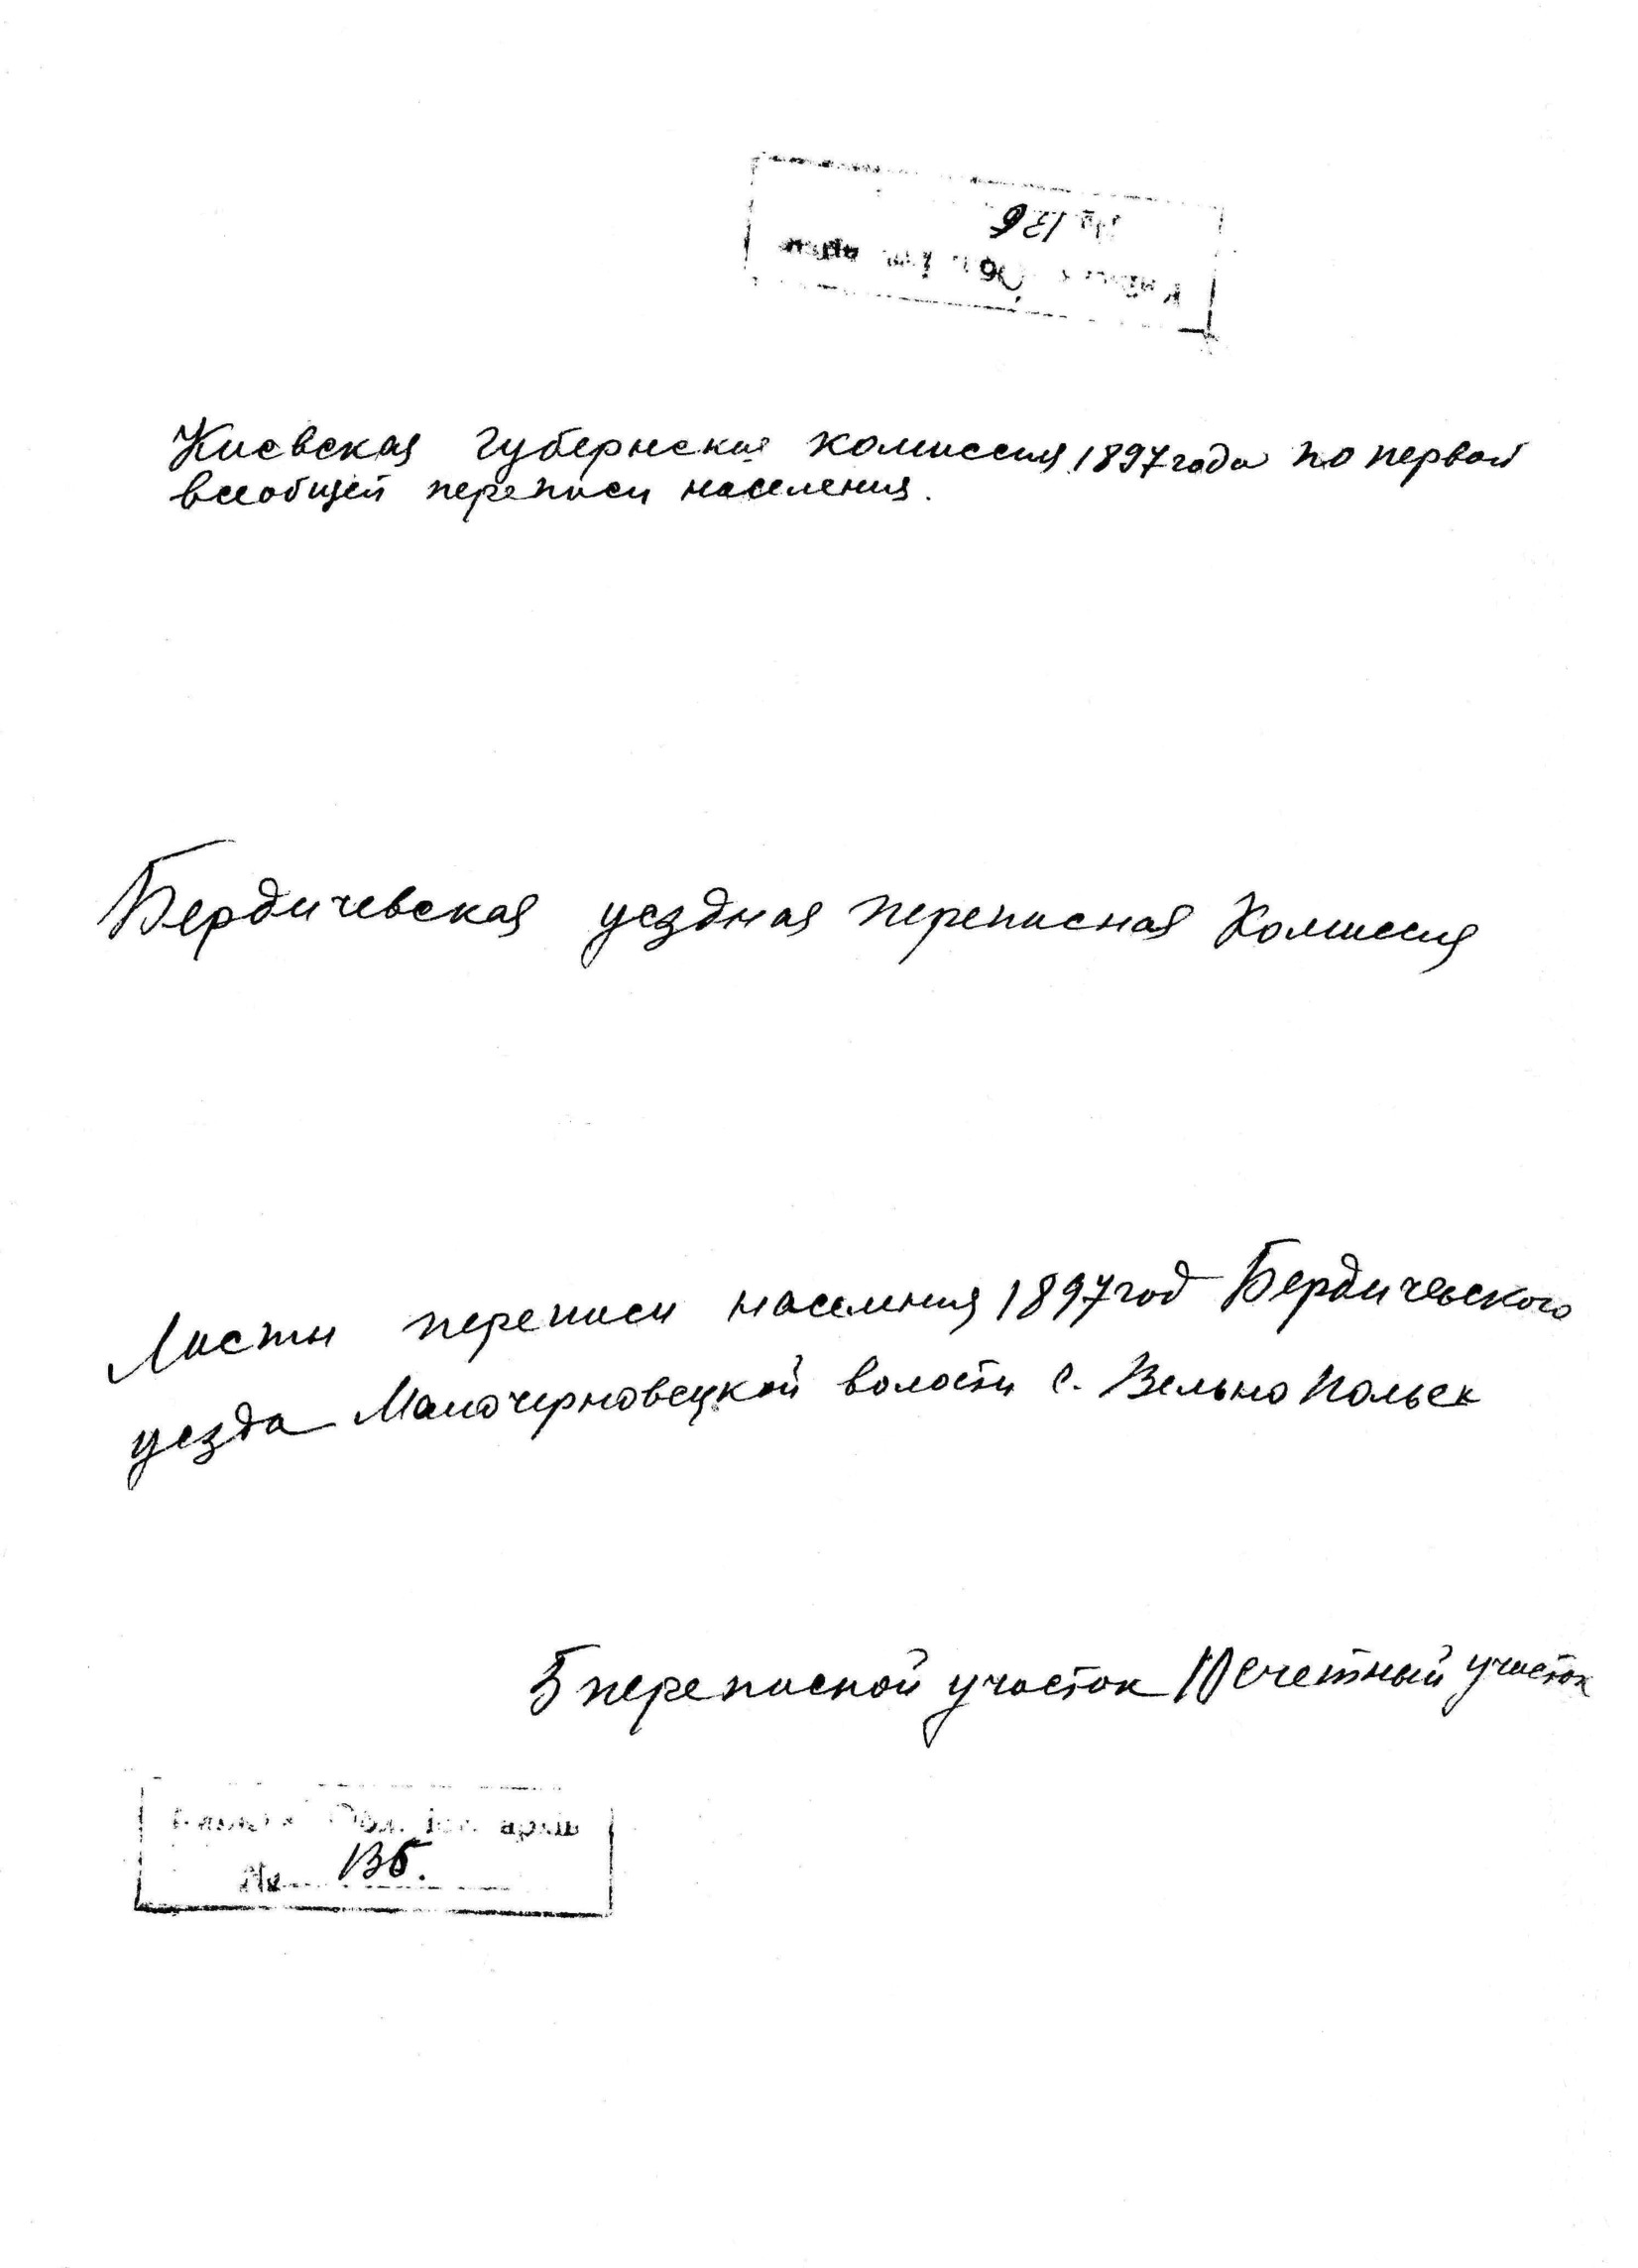 Киевская губернская комиссия 1897 года по первой
всеобщей переписи населения.
Бердичевская уездная переписная Комиссия
Листы переписи населения 1897 год Бердичевского
уезда Малочерновецкой волости с. Вельно Польск
5 переписной участок 10 счетный участок
136.